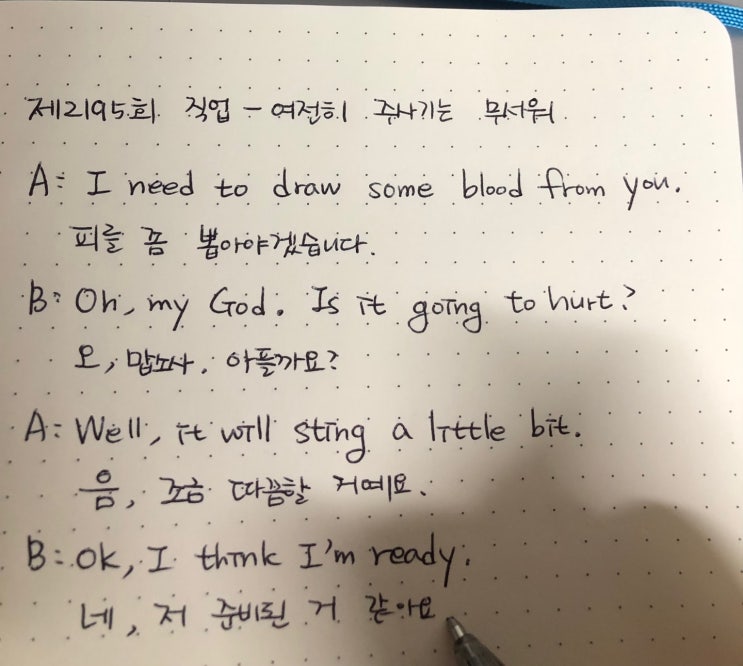 제2195회 직업 - 여전히 주사기는 무서워
A: I need to draw some blood from you.
피를 좀 뽑아야겠습니다.
B: Oh, my God. Is it going to hurt?
오, 맙소사. 아플까요?
A: Well, it will sting a little bit.
음, 조금 따끔할 거예요.
B: OK, I think I'm ready.
네, 저 준비된 거 같아요